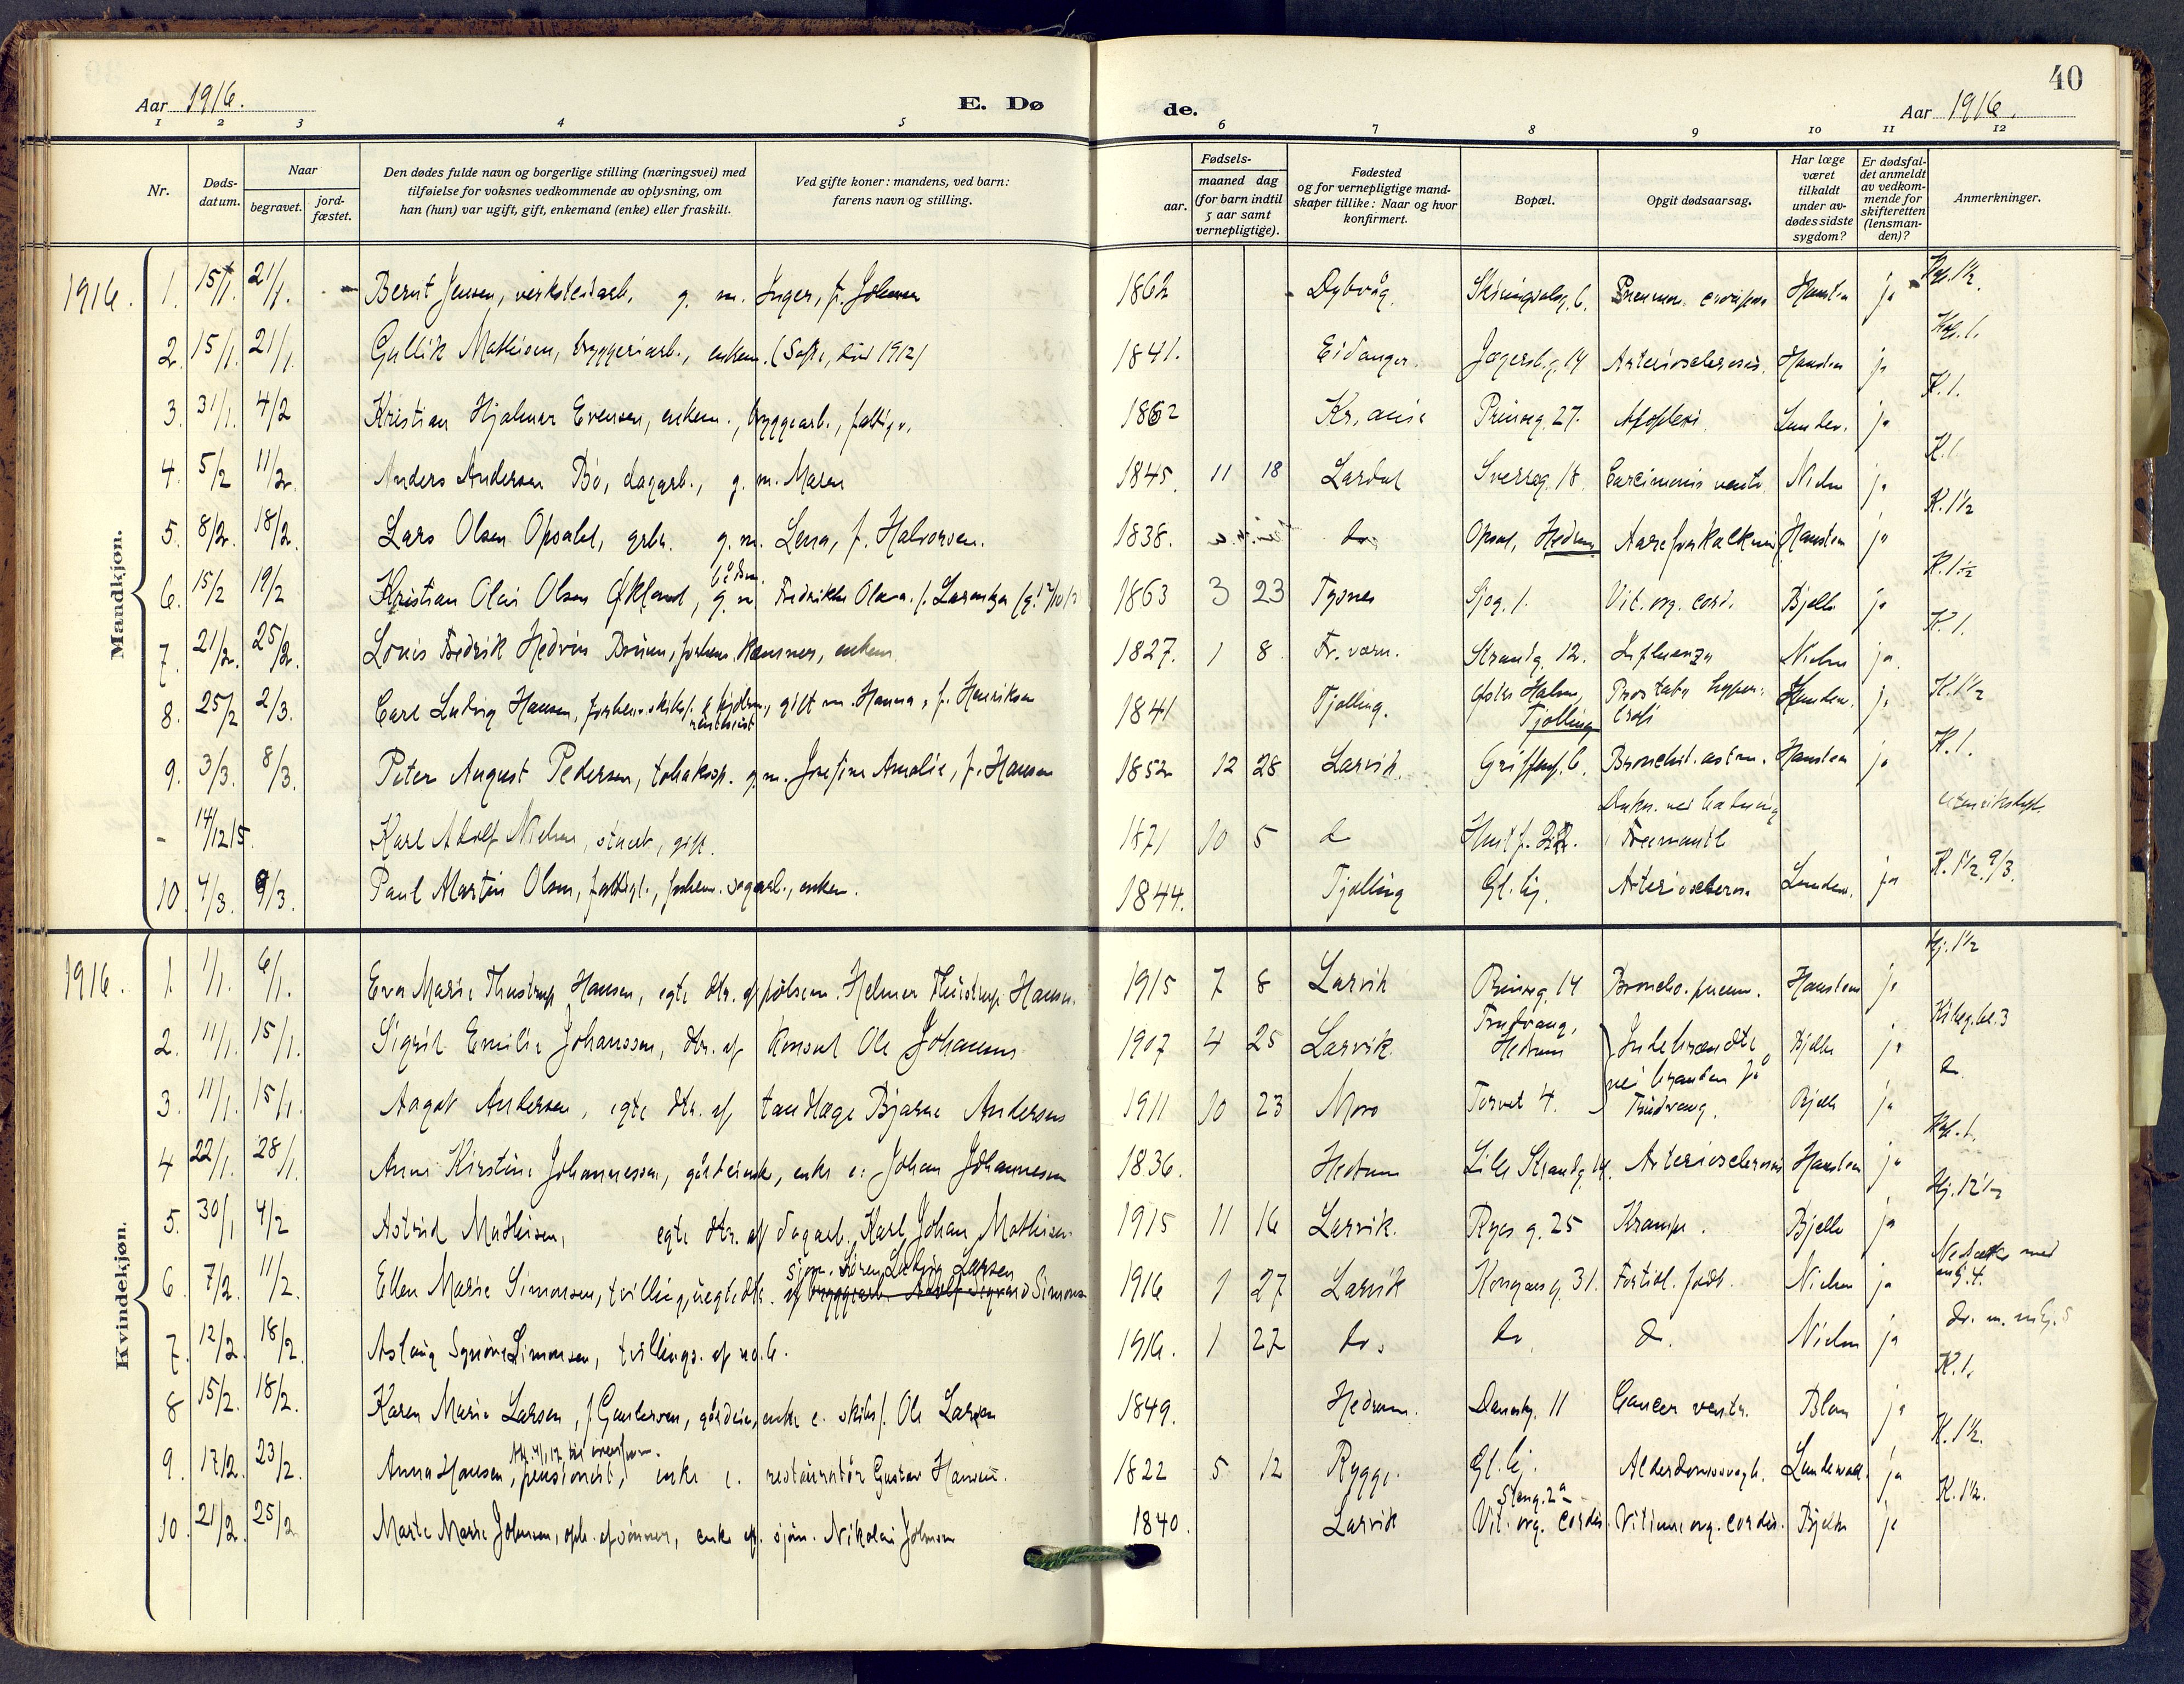 40
Aar 1916.
E. Dø
de.
Aar 1916.
1 2 3 4 5 6 7 8 9 10 11 12
Nr.
Døds-
datum.
Naar
begravet.
jord-
fæstet.
Den dødes fulde navn og borgerlige stilling (næringsvei) med
tilføielse for voksnes vedkommende av oplysning, om
han (hun) var ugift, gift, enkemand (enke) eller fraskilt.
Ved gifte koner: mandens, ved barn:
farens navn og stilling.
Fødsels-
aar.
maaned dag
(for barn indtil
5 aar samt
vernepligtige).
Fødested
og for vernepligtige mand-
skaper tillike: Naar og hvor
konfirmert.
Bopæl.
Opgit dødsaarsag.
Har læge
været
tilkaldt
under av-
dødes sidste
sygdom?
Er dødsfal-
det anmeldt
av vedkom-
mende for
skifteretten
(lensman-
den)?
Anmerkninger.
Mandkjøn.
1916. 1. 15/1. 21/1. Bernt Jensen, verkstedarb. g. m. Inger, f. Johnsen 1862 Dybvåg. Hansten ja
2. 15/1. 21/1. Gullik Mathisen, bryggeriarb., enkem. (Sofie, død 1912) 1841. Eidanger. Jegersb.g. 14 Arteriosclerosis. Hansten ja
3. 31/1. 4/2 Kristian Hjalmar Evensen, enkem., bryggearb., fattigv. 1862 Kr.ania Prinseg. 27. Apoplexi. Lunden. ja K. 1.
4. 5/2 11/2. Anders Andersen Bø, dagarb., g. m. Maren 1845. 11 18 Lardal Sverresg. 18. Nielsen ja K. 1
5. 8/2. 18/2. Lars Olsen Opsahl, grbr. g. m. Lena, f. Halvorsen. 1838. do. Opsal, Hedrum Aareforkalkning Hansten ja K. 1½
6. 15/2 19/2 Kristian Olai Olsen Økland, g. m. Fredrikke 1863 3 23 Sjøg. 1. Vit. org. cord. Bjelke ja K. 1½
7. 21/2. 25/2. Louis Fredrik Hedvin Bruun, forhen. kæmner, enkem. 1827. 1 8. Fr.værn. Strandg. 12. Influenza Nielsen ja. K. 1.
8. 25/2 2/3. Carl Ludvig Hansen, gift m. Hanna, f. Henriksen 1841 Tjølling. Østre Halsen, Tjølling Prostata hyper-trofi ja K. 1½
9. 3/3. 8/3. Peter August Pedersen, g. m. Josefine Amalie, f. Hansen 1852 12 28 Larvik. Bronchit. astm. Hansten ja K. 1.
- 14/12 15. Karl Adolf Nielsen, stuert, gift. 1871 10 5 do Drukn. ved Fremantle
10. 4/3. 9/3. Paul Martin Olsen, forhen. enkem. 1844. Tjølling Arteriosclerose Lunden. ja K. 1½ 9/3.
Kvindekjøn.
1916. 1. 1/1. 6/1. Eva Marie Thustrup Hansen, egte dtr. af pølsem. Helmer Thustrup Hansen. 1915 7 8 Larvik Prinseg. 14 Broncho-pneum. Hansten ja
2. 11/1. 15/1. Sigrid Emilie Johanssen, dtr. af konsul Ole Johannsen 1907 4 25 Larvik. Trudvang, Hedrum Indebrændte Bjelke ja
3. 11/1. 15/1. Aagot Andersen, egte dtr. af tandlæge Bjarne Andersen 1911 10 23 Moss Torvet 4. ved branden på Trudvang. Bjelke ja do.
4 22/1. 28/1. Anne Kirstine Johannessen, enke e. Johan Johannesen 1836. Hedrum Lille Strandg. 14. Arteriosclerosis Hansten ja
5. 30/1 4/2 Astrid Mathisen, egte dtr. af dagarb. Karl Johan Mathisen. 1915 11 16 Larvik. Ryes g. 25 Krampe. Bjelke ja
6 7/2. 11/2. Ellen Marie Simonsen, tvilling, uegte dtr. sjøm. Søren Ludvig Larsen af bryggearb. Adolf Sigvard Simonsen 1916 1 27 Larvik Kongens g. 31. Fortidl. født. Nielsen ja Nedsatte med
7. 12/2. 18/2. Aslaug Synøve Simonsen, tvillings. af no. 6. 1916. 1 27 do. do. do. Nielsen ja
8 15/2. 18/2. Karen Marie Larsen, enke e. Ole Larsen 1849. Hedrum. 11 Cancer ventr. Blom ja K. 1.
9. 17/2. 23/2. Anna Hansen, pensionist, enke e. restauratør Gustav Hansen. 1822 5 12 Rygge. Alderdomssvagh. ja K. 1½.
10. 21/2. 25/2 Marte Marie Johnsen, enke af sjøm. Nikolai Johnsen 1840. Larvik Vit. org. cordis. Vitium org. cordis. Bjelke ja K. 1½.